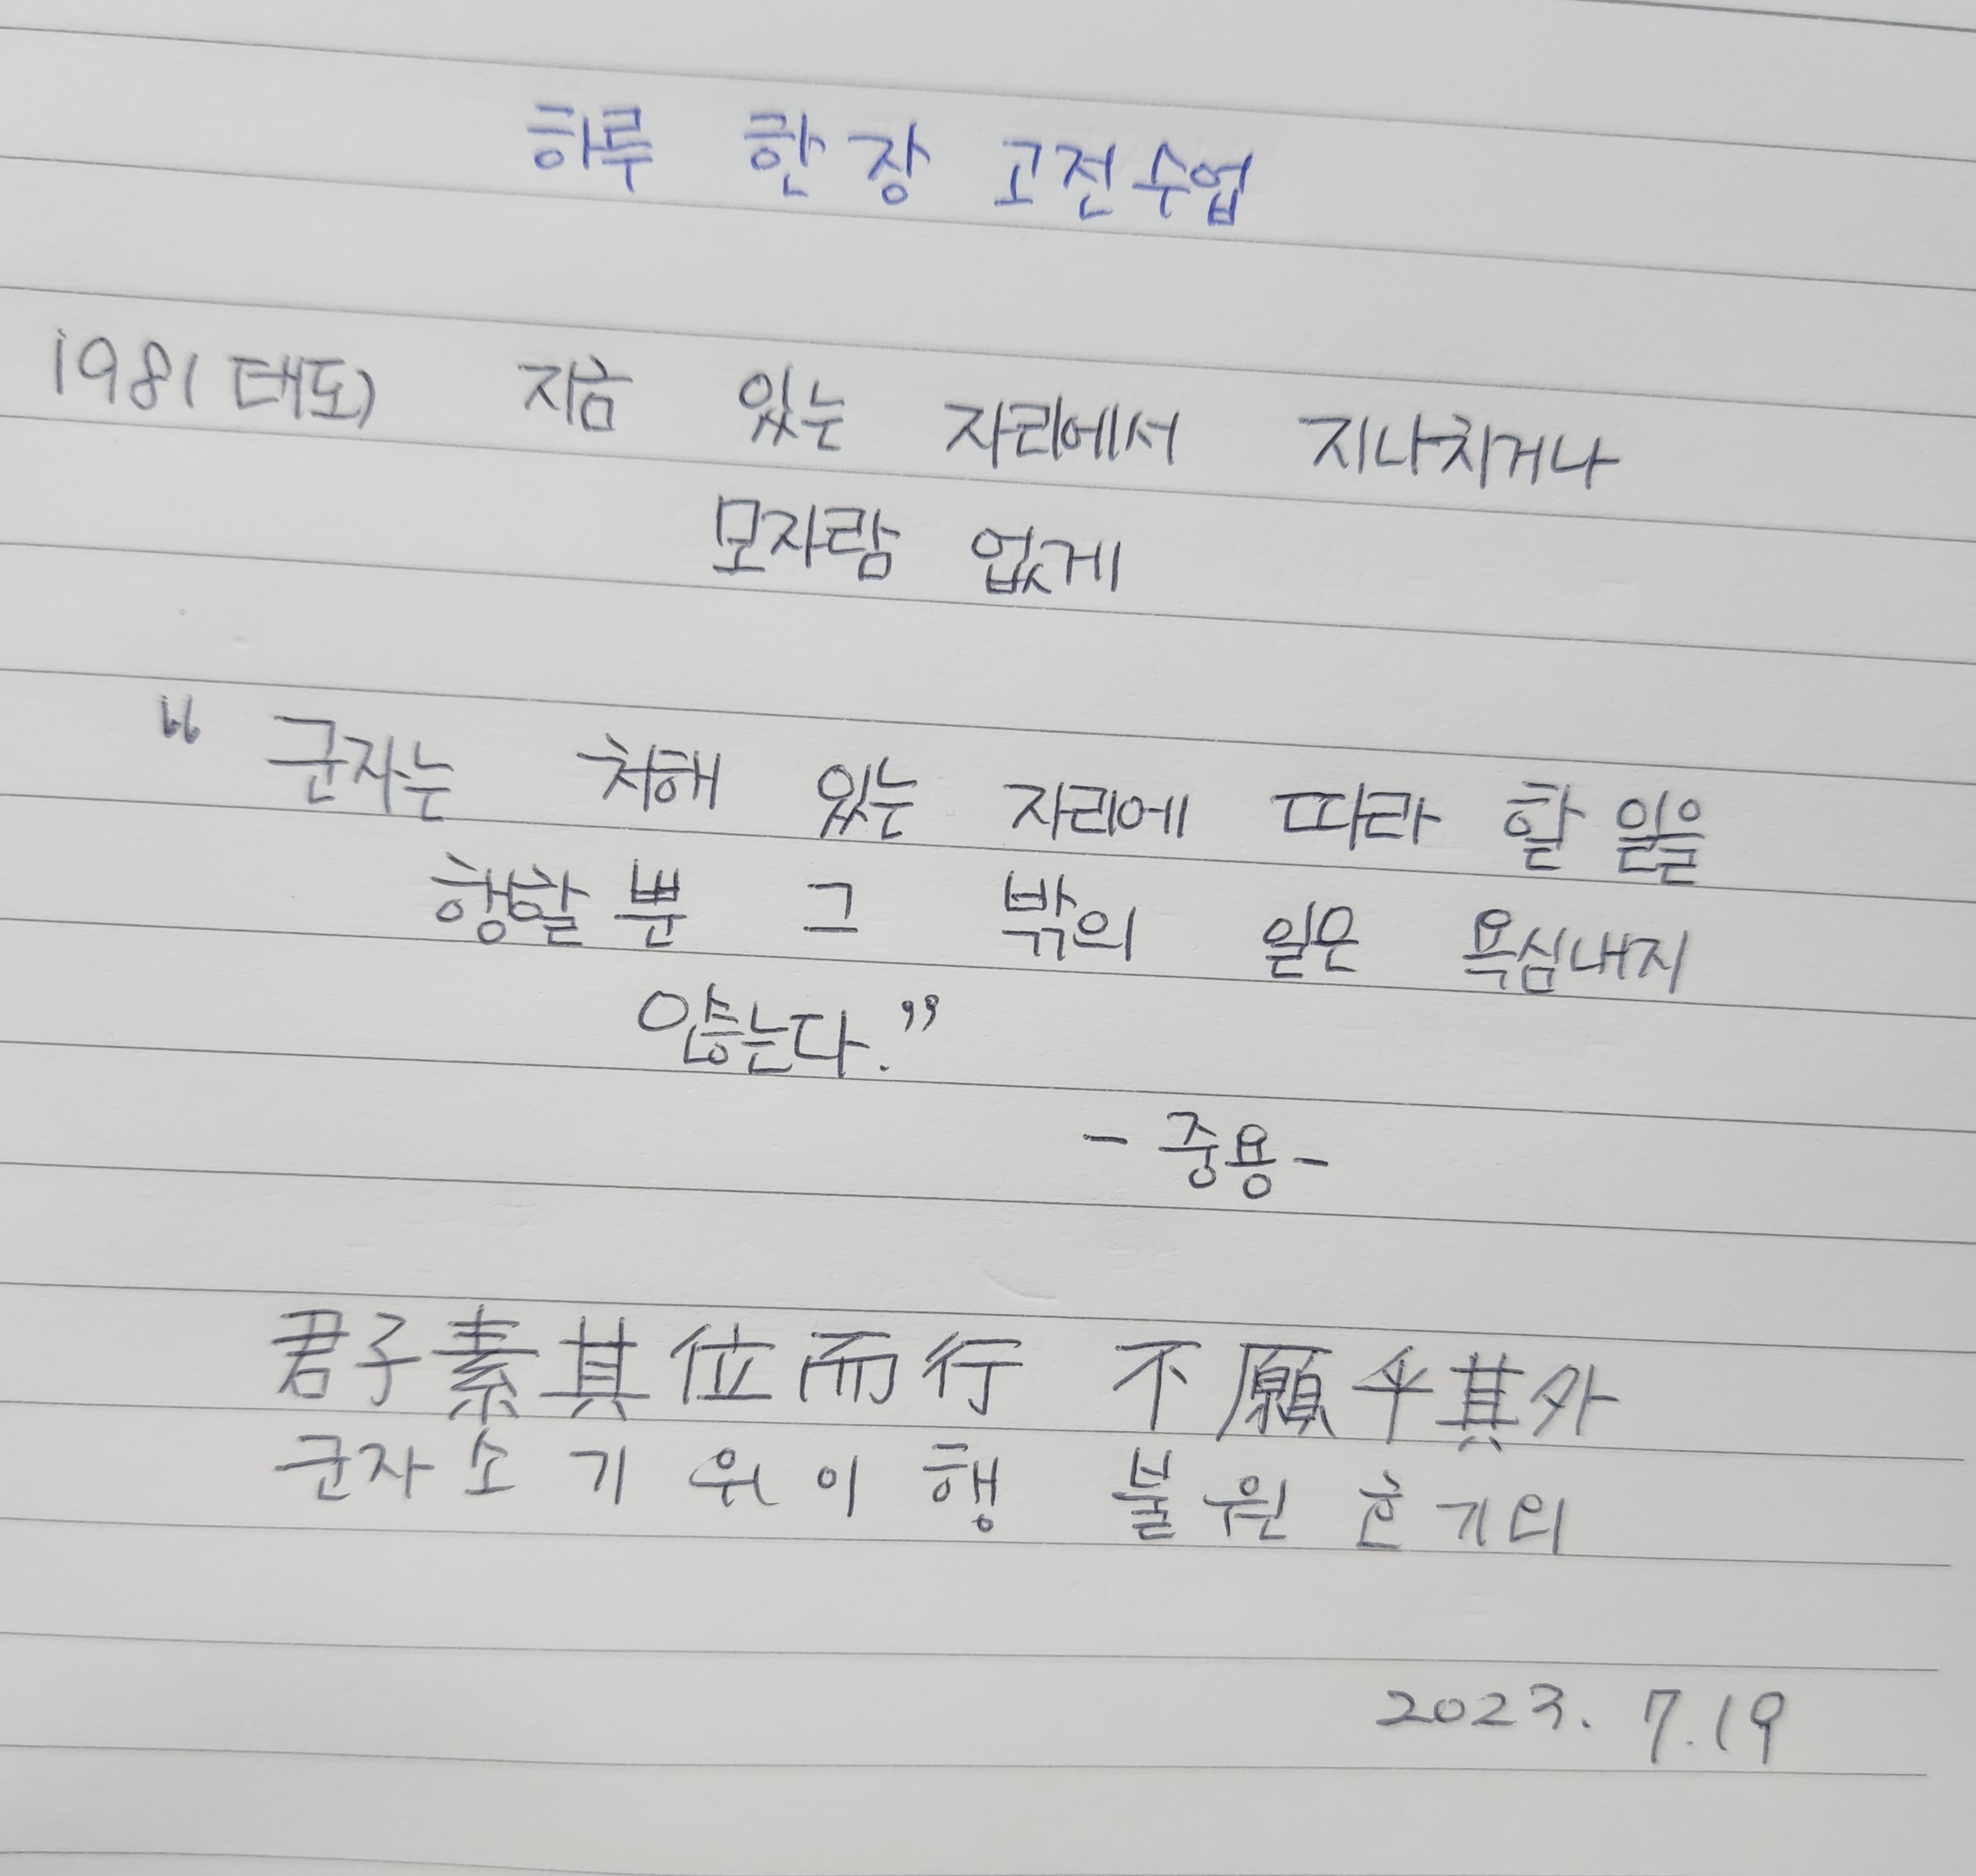 하루 한 장 고전수업
198(태도) 지금 있는 자리에서 지나치거나
모자람 없게
“군자는 처해 있는 자리에 따라 할 일을
행할 뿐 그 밖의 일은 욕심내지
않는다.”
- 중용 -
君子素其位而行 不願乎其外
군자소기위이행 불원호기외
2023. 7.19